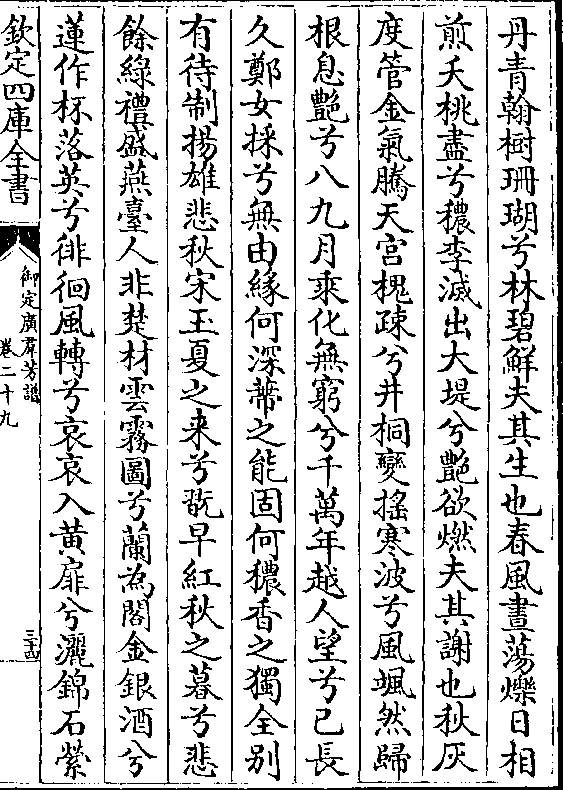 丹青翰樹珊瑚兮林碧鮮夫其生也春風晝蕩爍日相
煎夭桃盡兮穠李滅出大堤兮艶欲燃夫其謝也秋灰
度管金氣騰天宮槐疎兮井桐變搖寒波兮風颯然歸
根息艶兮八九月乘化無窮兮千萬年越人望兮已長
久鄭女採兮無由緣何深蔕之能固何穠香之獨全别
有待制揚雄悲秋宋玉夏之来兮翫早紅秋之暮兮悲
餘綠禮盛燕臺人非楚材雲霧圖兮蘭為閣金銀酒兮
蓮作杯落英兮徘徊風轉兮哀哀入黄扉兮灑錦石縈
欽定四庫全書
御定廣羣芳譜
卷二十九
三十四